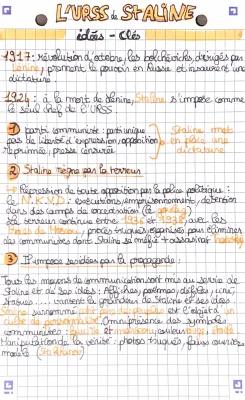 L'URSS de STALINE
idées - clés
1917 : révolution d'octobre, les bolchéviks, dirigés par
Lénine, prennent le pouvoir en Russie et instaurent une
dictature.
1924 : à la mort de Lénine, Staline s'impose comme
le seul chef de l'URSS
1 parti communiste : parti unique
pas de liberté d'expression, opposition
réprimée, presse censurée
Staline met
en place une
dictature
2 Staline règne par la terreur
→ Répression de toute opposition par la police politique :
le N.K.V.D : exécutions, emprisonnement, déportation
dans des camps de concentration (le goulag)
terreur continue entre 1936 et 1938, avec les
Procès de Moscou, procès truqués organisés pour éliminer
des communistes dont Staline se méfie + assassinat
3 Il impose ses idées par la propagande :
Tous les moyens de communication sont mis au service de
Staline et de ses idées : Affiches, poèmes, défilés, une,
statues .... vantent la grandeur de Staline et ses idées
Staline surnommé petit père des peuples est l'objet d'un
culte de personnalité. Omniprésence des symboles
communistes : faucille et marteau, couleur rouge, étoile
Manipulation de la vérité : photos truquées, faux ouvriers
modèle (Stakhanov)